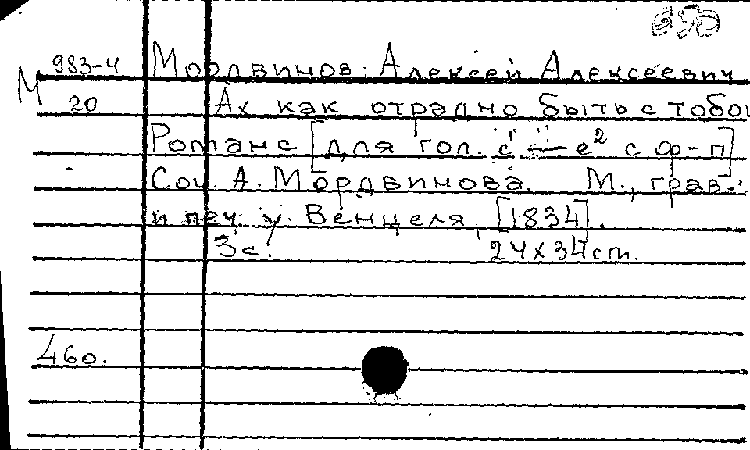 М 983-4 Мордвинов. Алексей Алексеевич
20 Ах как отрадно быть с тобой
Романс [для гол. c' – e² с ф-п]
Соч. А. Мордвинова. М., грав.
и печ. у Венцеля, [1834].
3 с. 24х34 cm.
460.